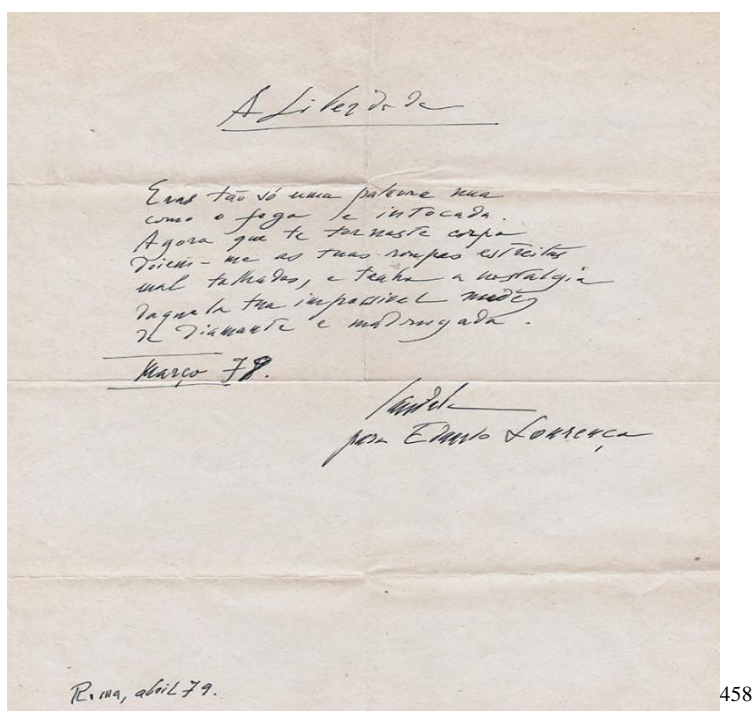 A Liberdade
Eras tão só uma palavra nua
como o fogo e intocada.
Agora que te tornaste corpo
doiem-me as tuas roupas estreitas
mal talhadas, e tenho a nostalgia
daquela tua impossivel nudez
de diamante e madrugada.
Março 78.
para Eduardo Lourenço
Roma, abril 79.
458